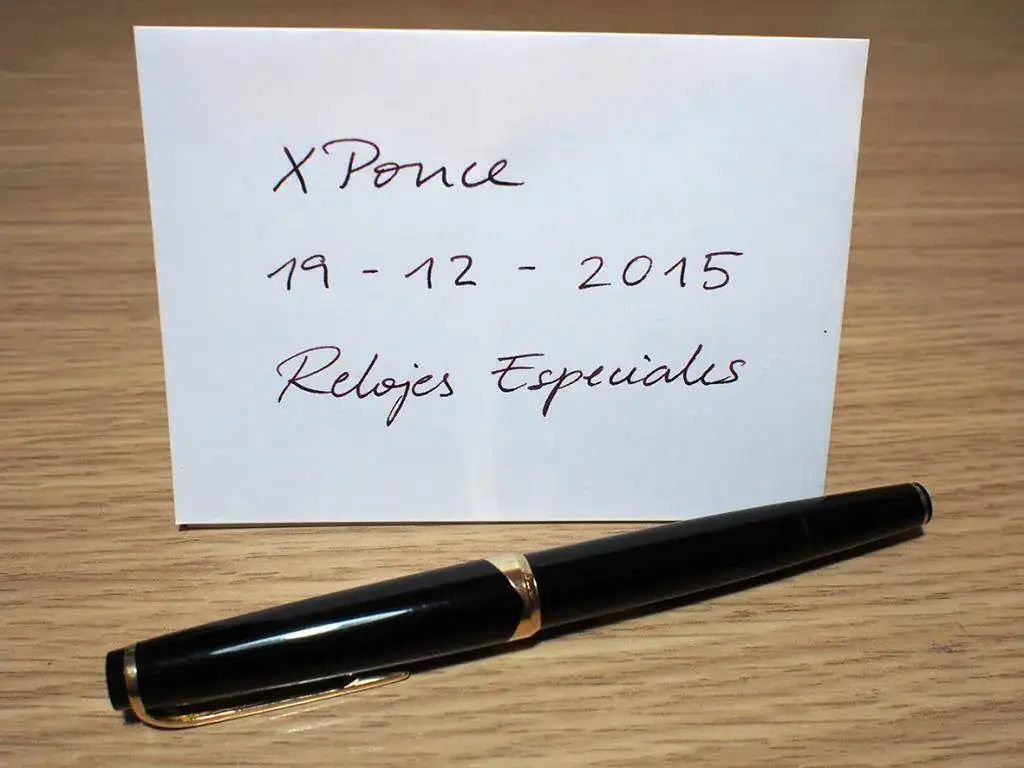 X Ponce
19 - 12 - 2015
Relojes Especiales